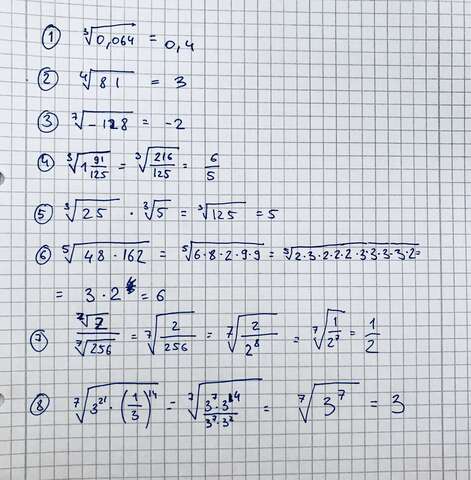 1 ∛0,064 = 0,4
2 ∜81 = 3
3 ⁷√-128 = -2
4 ∛(1 91/125) = ∛(216/125) = 6/5
5 ∛25 · ∛5 = ∛125 = 5
6 ⁵√(48 · 162) = ⁵√(6·8·2·9·9) = ⁵√(2·3·2·2·2·3·3·3·3·2)
= 3 · 2 = 6
7 ⁷√2/⁷√256 = ⁷√(2/256) = ⁷√(2/2⁸) = ⁷√(1/2⁷) = 1/2
8 ⁷√(3²¹ · (1/3)¹⁴) = = ⁷√3⁷ = 3